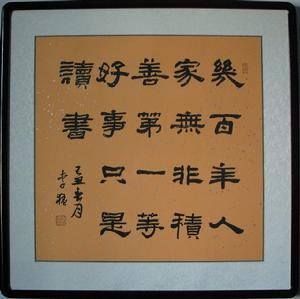 幾百年人
家無非積
善第一等
好事只是
讀書
己丑春月